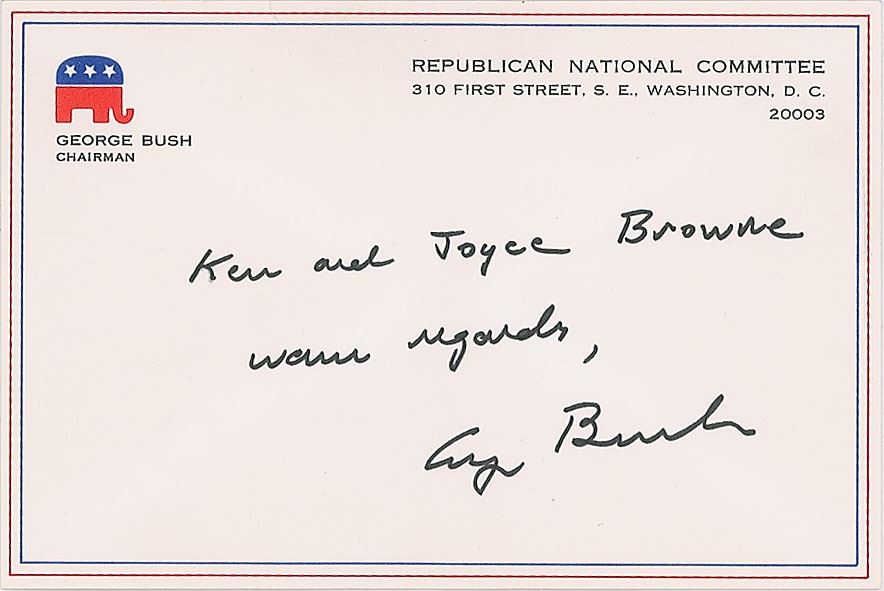 REPUBLICAN NATIONAL COMMITTEE
310 FIRST STREET, S. E., WASHINGTON, D. C.
20003
GEORGE BUSH
CHAIRMAN
Ken and Joyce Browne
warm regards,
George Bush